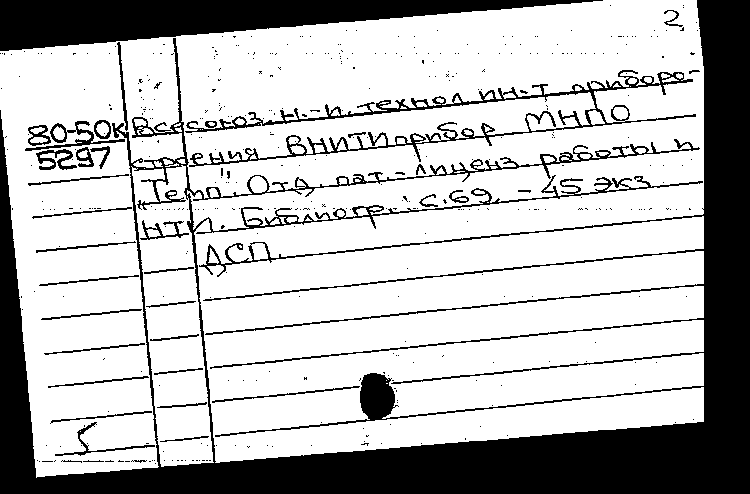 2
80-50к Всесоюз. н.-и. технол ин-т приборо-
5297 строения ВНИТИприбор МНПО
"Темп". Отд. пат.-лиценз работы и
НТИ. Библиогр.: с.69. - 45 экз
ДСП.
5